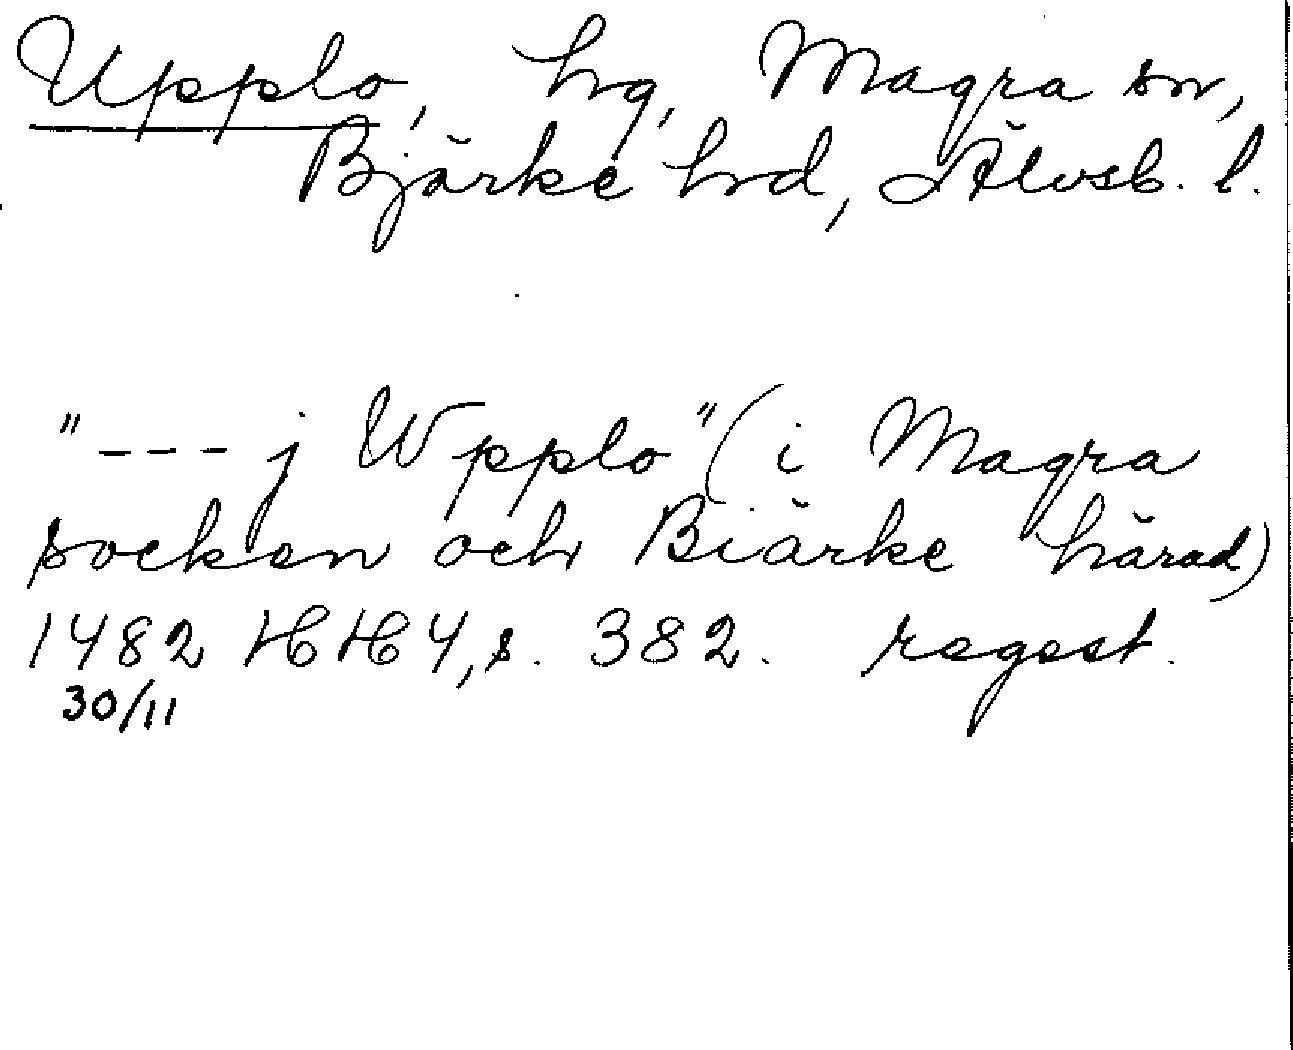 Upplo, hg, Magra sn,
Bjärke hd, Älvsb. l.
"--- j Wpplo" (i Magra
socken och Biärke härad)
1482 HH 4, s. 382. regest.
30/11